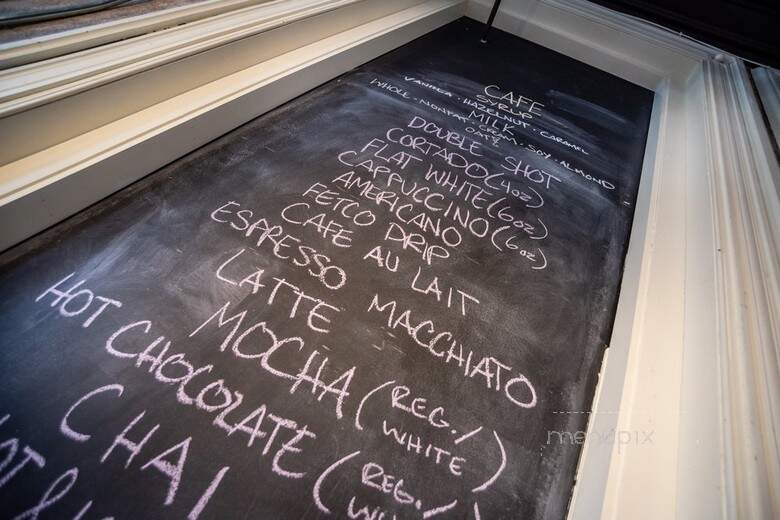 CAFE
SYRUP
VANILLA · HAZELNUT · CARAMEL
MILK
WHOLE · NONFAT · CREAM · SOY · ALMOND
OATLY
DOUBLE SHOT
CORTADO (4oz)
FLAT WHITE (6oz)
CAPPUCCINO (6oz)
AMERICANO
FETCO DRIP
CAFE AU LAIT
ESPRESSO MACCHIATO
LATTE
MOCHA (REG. / WHITE)
HOT CHOCOLATE (REG. /
CHAI
menupix